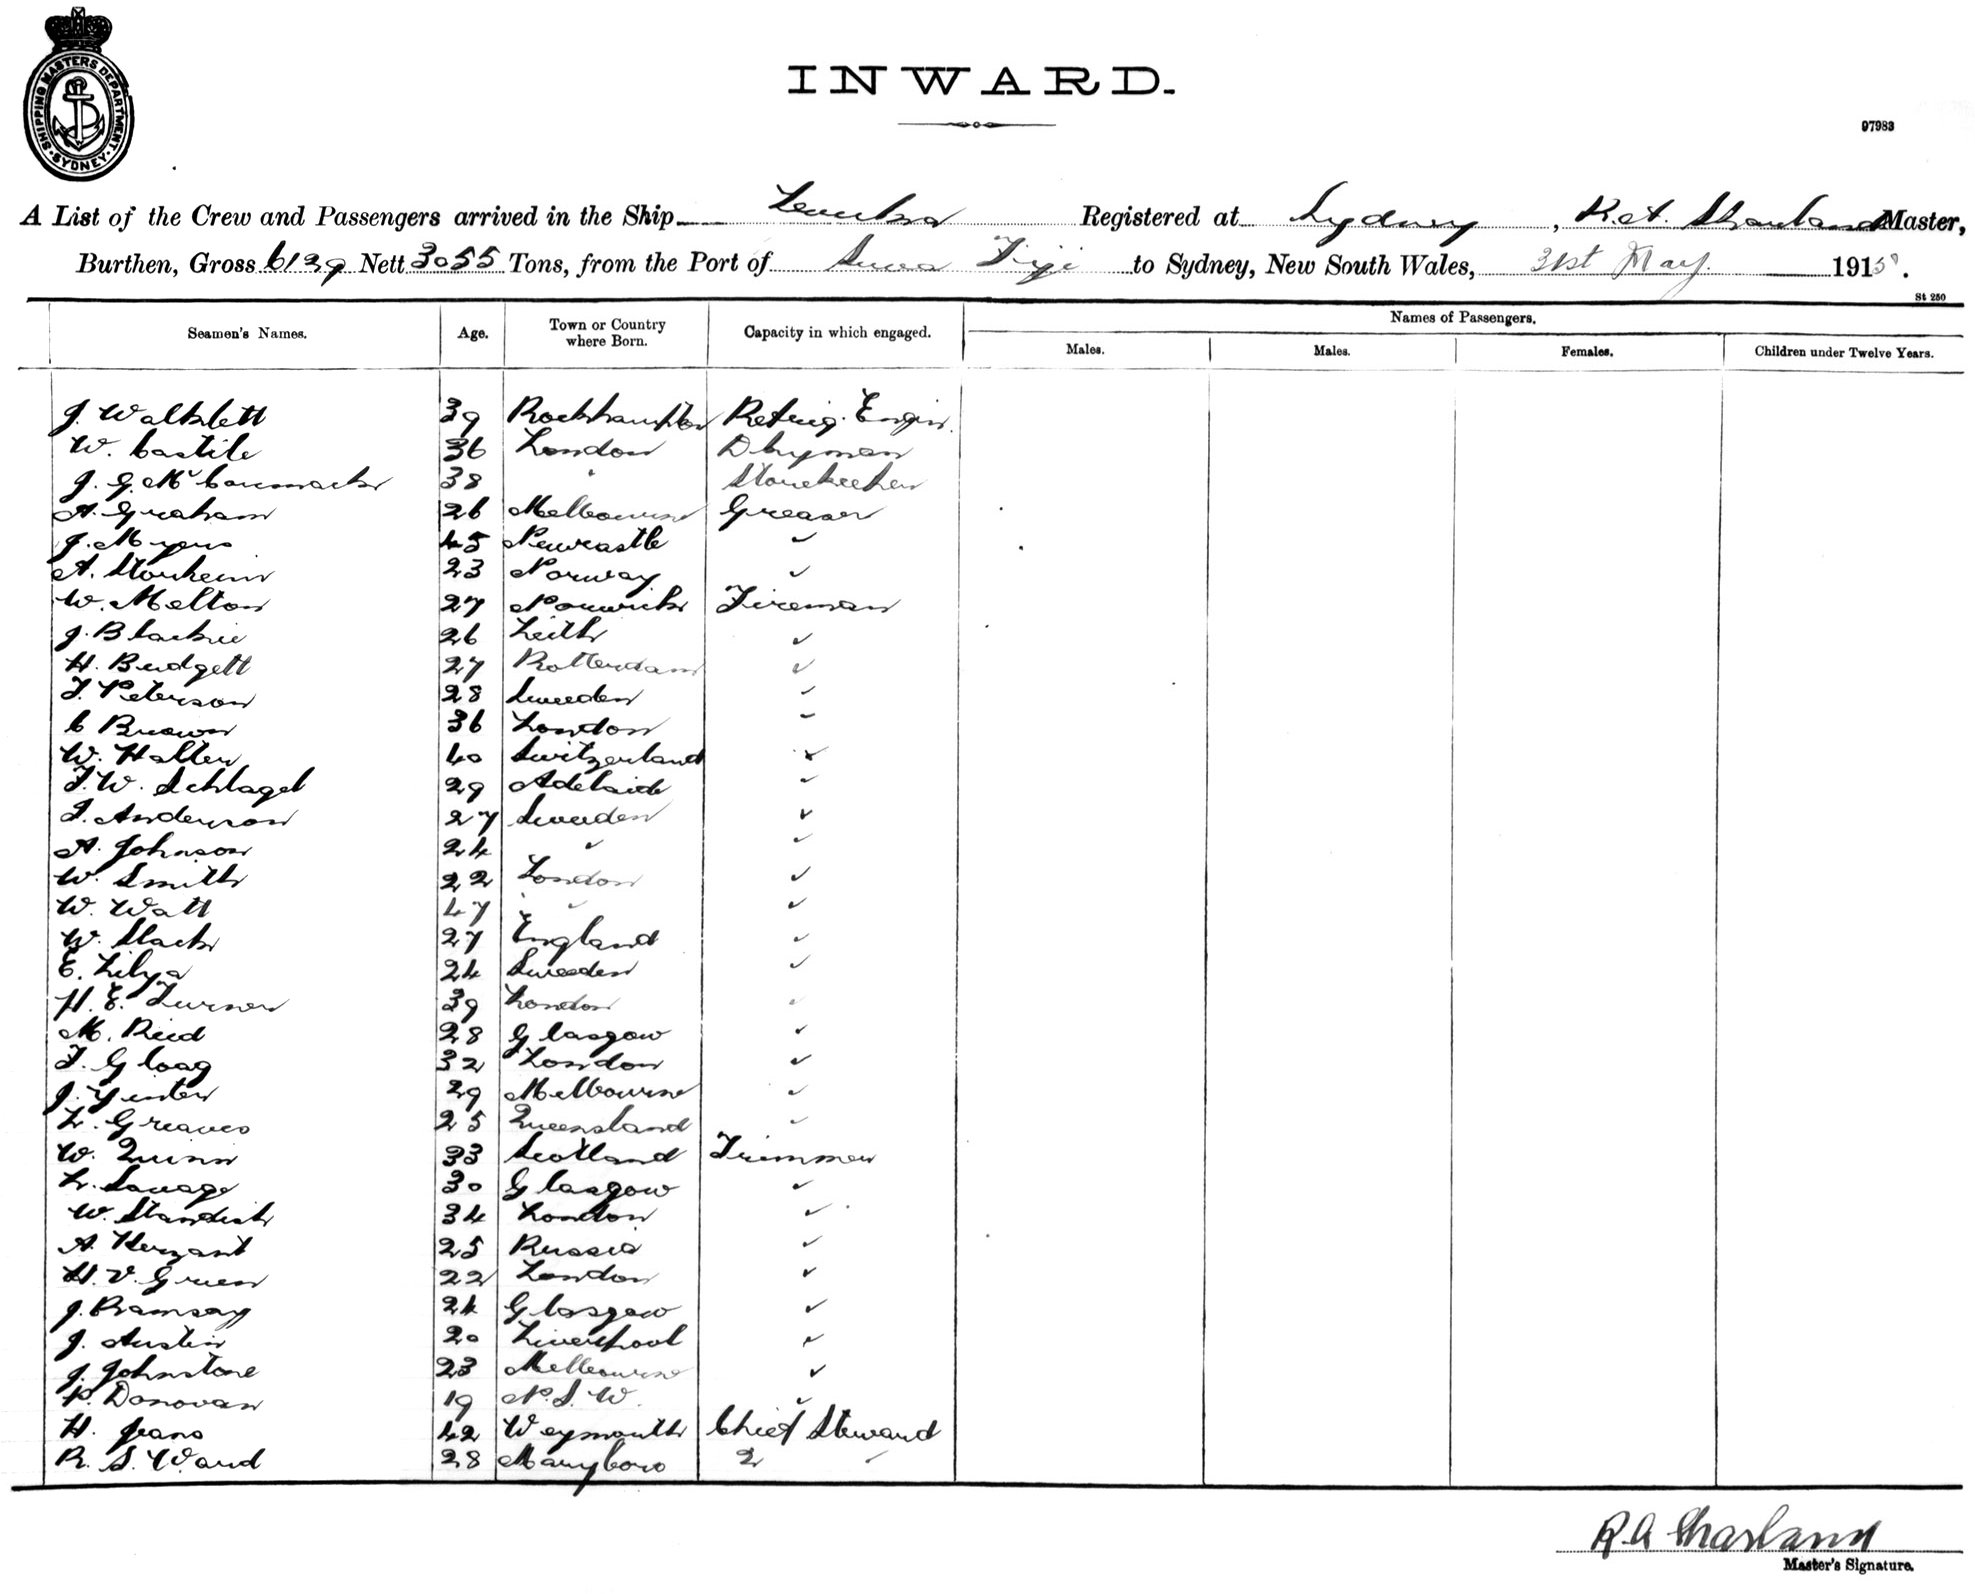 SHIPPING MASTERS DEPARTMENT
SYDNEY
INWARD.
97983
A List of the Crew and Passengers arrived in the Ship Levuka Registered at Sydney, R.A. Sharland Master,
Burthen, Gross 6129 Nett 3055 Tons, from the Port of Suva Fiji to Sydney, New South Wales, 31st May. 1915.
St 250
Seamen's Names. Age. Town or Country where Born. Capacity in which engaged. Names of Passengers.
Males. Males. Females. Children under Twelve Years.
J. Walklett 39 Rockhampton Refrig. Engin.
W. Castile 36 London Dkyman
J. G. McCormack 38 " Storekeeper
A. Graham 26 Melbourne Greaser
J. Myers 45 Newcastle "
A. Storheim 23 Norway "
W. Melton 27 Norwich Fireman
J. Blackie 26 Leith "
H. Budgett 27 Rotterdam "
F. Peterson 28 Sweeden "
C Brown 36 London "
W. Haller 40 Switzerland "
F. W. Schlagel 29 Adelaide "
F. Anderson 27 Sweeden "
A. Johnson 24 " "
W. Smith 22 London "
W. Watt 47 " "
W. Slack 27 England "
E. Lilya 24 Sweeden "
H. E. Turner 39 London "
M. Reid 28 Glasgow "
F. Gloag 32 London "
J. 29 Melbourne "
L. Greaves 25 Queensland "
W. Quinn 33 Scotland Trimmer
L. Savage 30 Glasgow "
W. Standish 34 London "
A. 25 Russia "
H. V. Green 22 London "
J. Ramsay 24 Glasgow "
J. Austin 20 Liverpool "
J. Johnstone 23 Melbourne "
P. Donovan 19 N.S.W. "
H. Jeans 42 Weymouth Chief Steward
R. S. Ward 28 Maryboro 2 "
R A Sharland
Master's Signature.